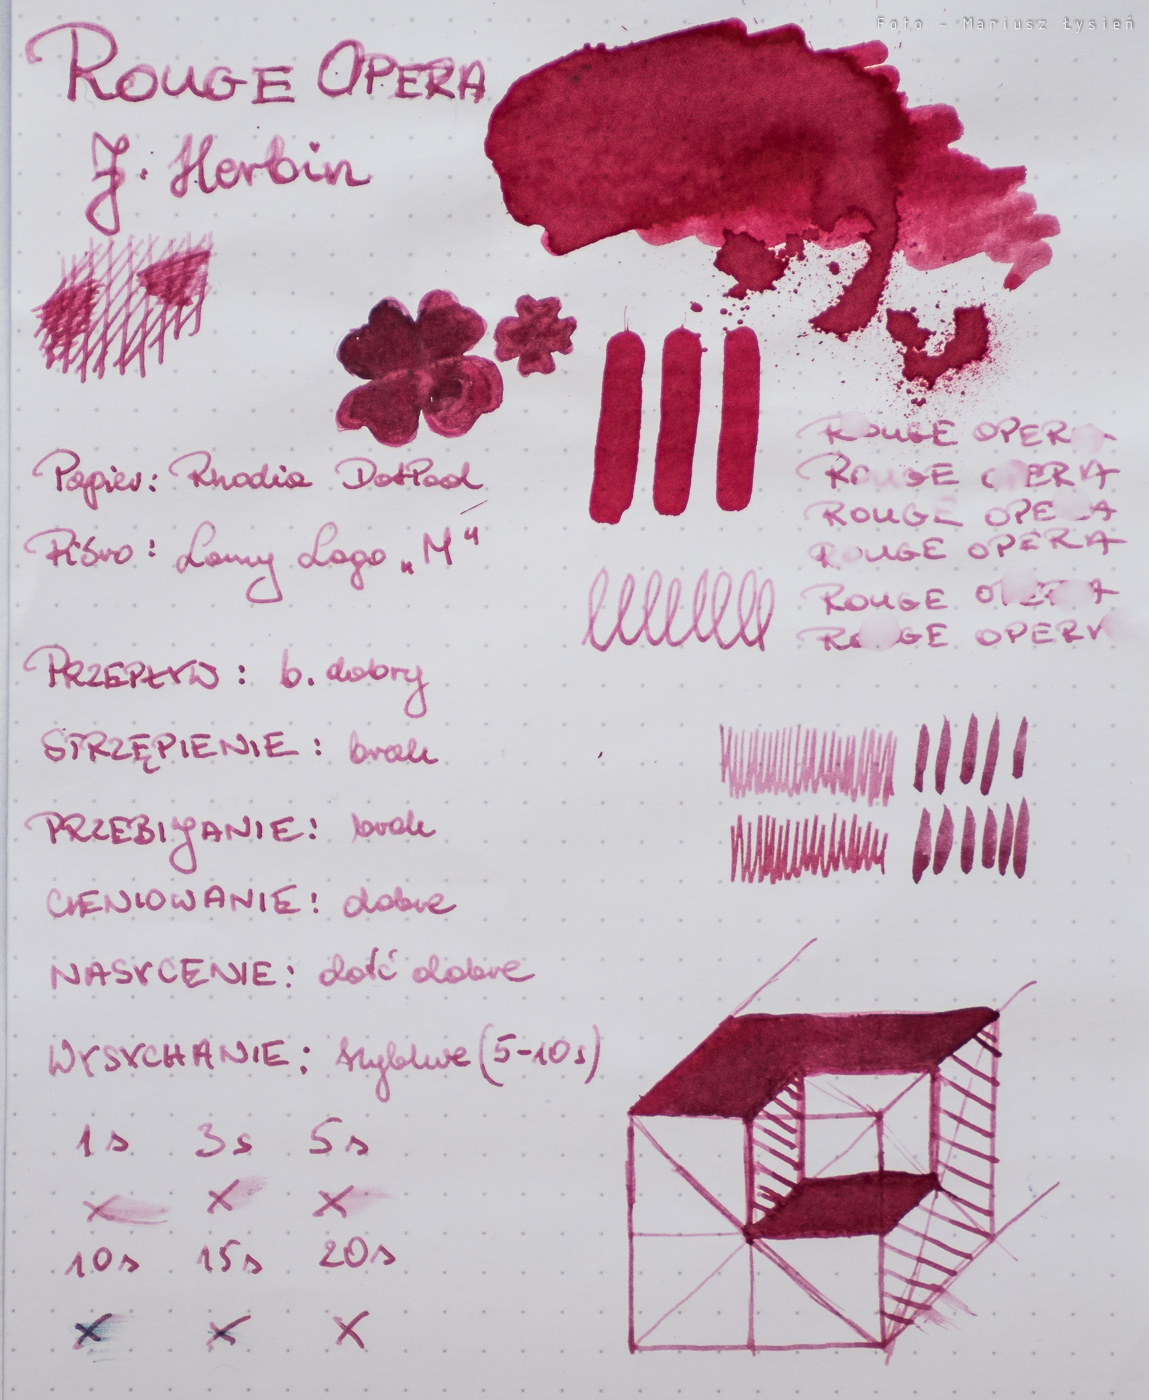 Foto - Mariusz Łysień
ROUGE OPERA
J. Herbin
Papier: Rhodia DotPad
Pióro: Lamy Logo „M“
PRZEPŁYW: b. dobry
STRZĘPIENIE: brak
PRZEBIJANIE: brak
CIENIOWANIE: dobre
NASYCENIE: dość dobre
WYSYCHANIE: szybkie (5-10s)
1s 3s 5s
10s 15s 20s
ROUGE OPERA
ROUGE OPERA
ROUGE OPERA
ROUGE OPERA
ROUGE OPERA
ROUGE OPERA